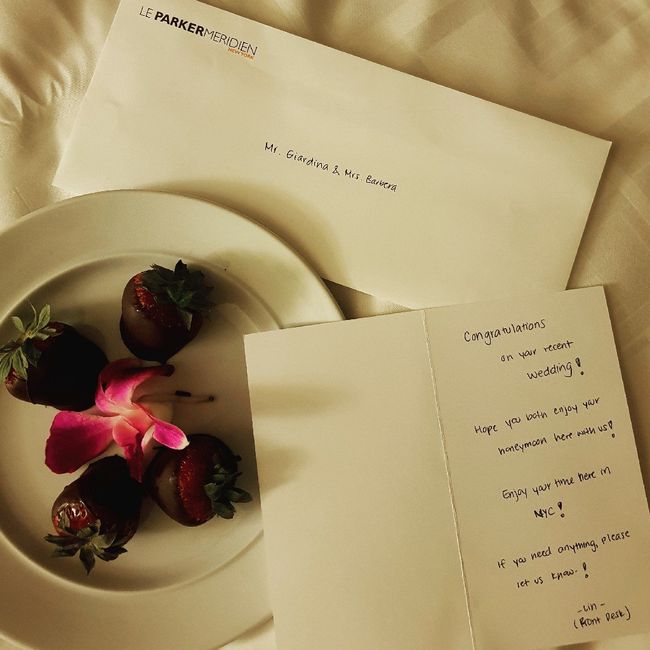 LE PARKERMERIDIEN
NEW YORK
Mr. Giardina & Mrs. Barbera
Congratulations
on your recent
wedding!
Hope you both enjoy your
honeymoon here with us!
Enjoy your time here in
NYC!
If you need anything, please
let us know-!
-Lin-
(Front Desk)